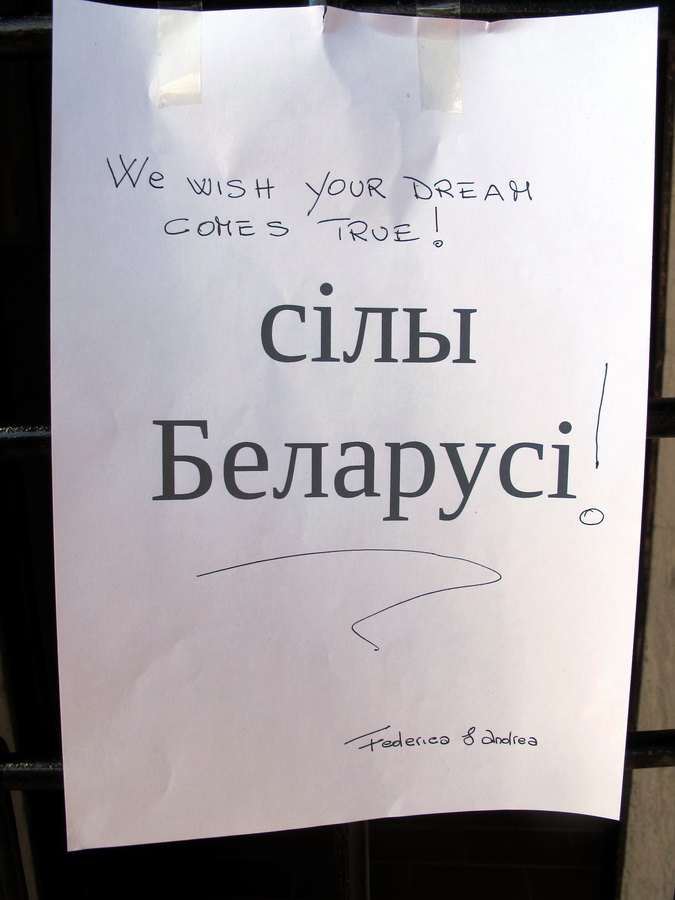 We WISH YOUR DREAM
COMES TRUE!
сілы
Беларусі!
Federica & Andrea